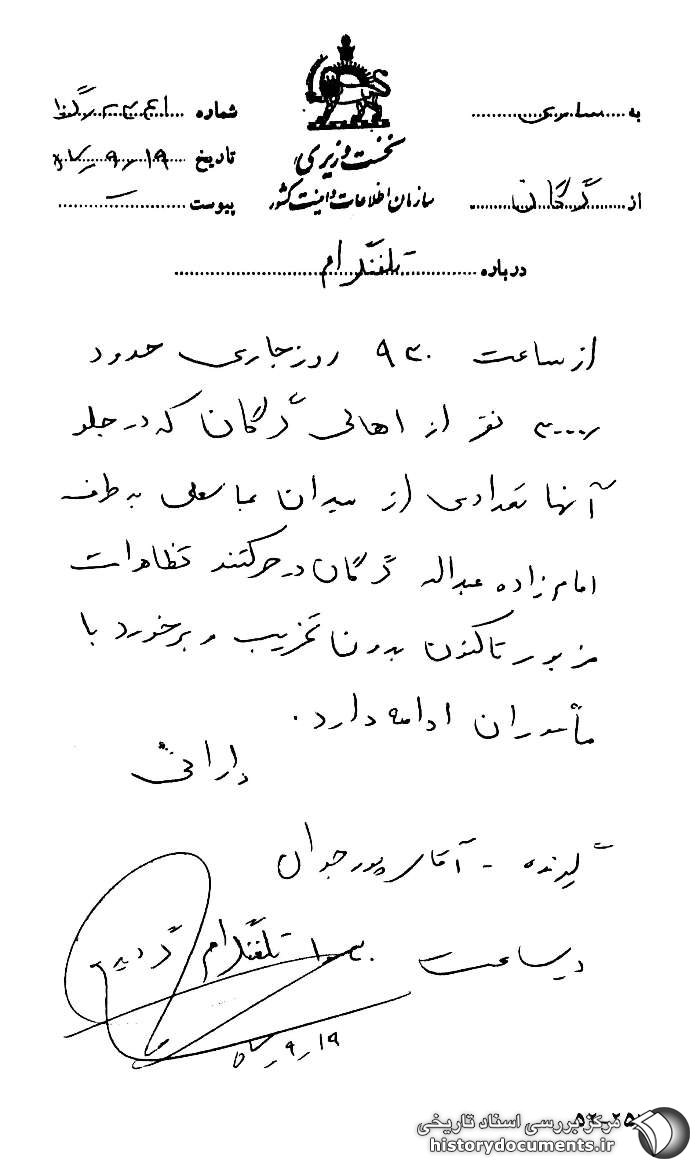 به ساری
شماره
نخست وزیری
تاریخ ۱۹ ر ۹ ر ۵۷
از گرگان
سازمان اطلاعات و امنیت کشور
پیوست
درباره تلفنگرام
از ساعت ۹۳۰ روز جاری حدود
۳۰۰۰ر نفر از اهالی گرگان که در جلو
آنها تعدادی از میدان عباسعلی به طرف
امام زاده عبداله گرگان در حرکتند تظاهرات
مزبور تاکنون بدون تخریب و برخورد با
مأموران ادامه دارد.
دارائی
گیرنده - آقای پورجوان
در ساعت تلفنگرام گردید
۱۹ ر ۹ ر ۵۷
مرکز بررسی اسناد تاریخی
historydocuments.ir